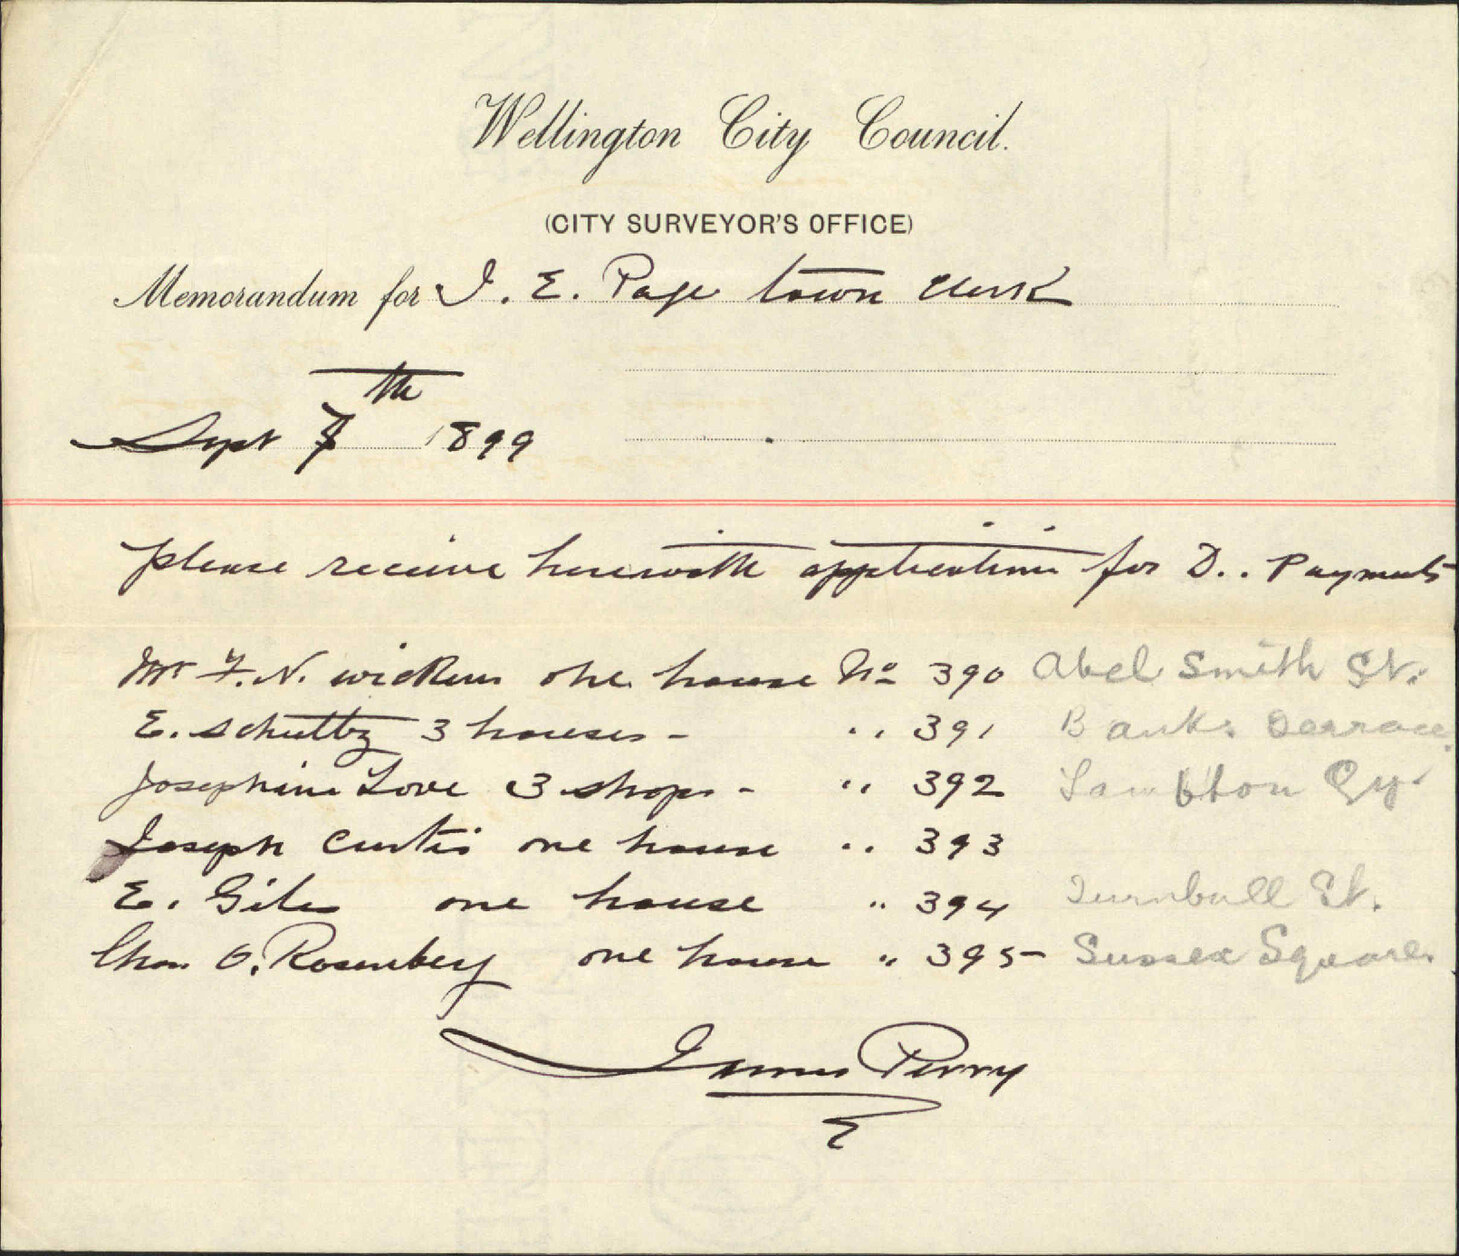 Wellington City Council.
(CITY SURVEYOR'S OFFICE)
Memorandum for J. E. Page town clerk
Sept 7th 1899
please receive herewith applications for D.. Payments
Mr F. N. wickens one house No 390 Abel Smith St.
E. schultz 3 houses - " 391 Banks Terrace.
Josephine Love 3 shops - " 392 Lambton Qy.
Joseph Curtis one house " 393
E. Giles one house " 394 Turnbull St.
Chas O. Rosenberg one house " 395 - Sussex Square.
James Perry